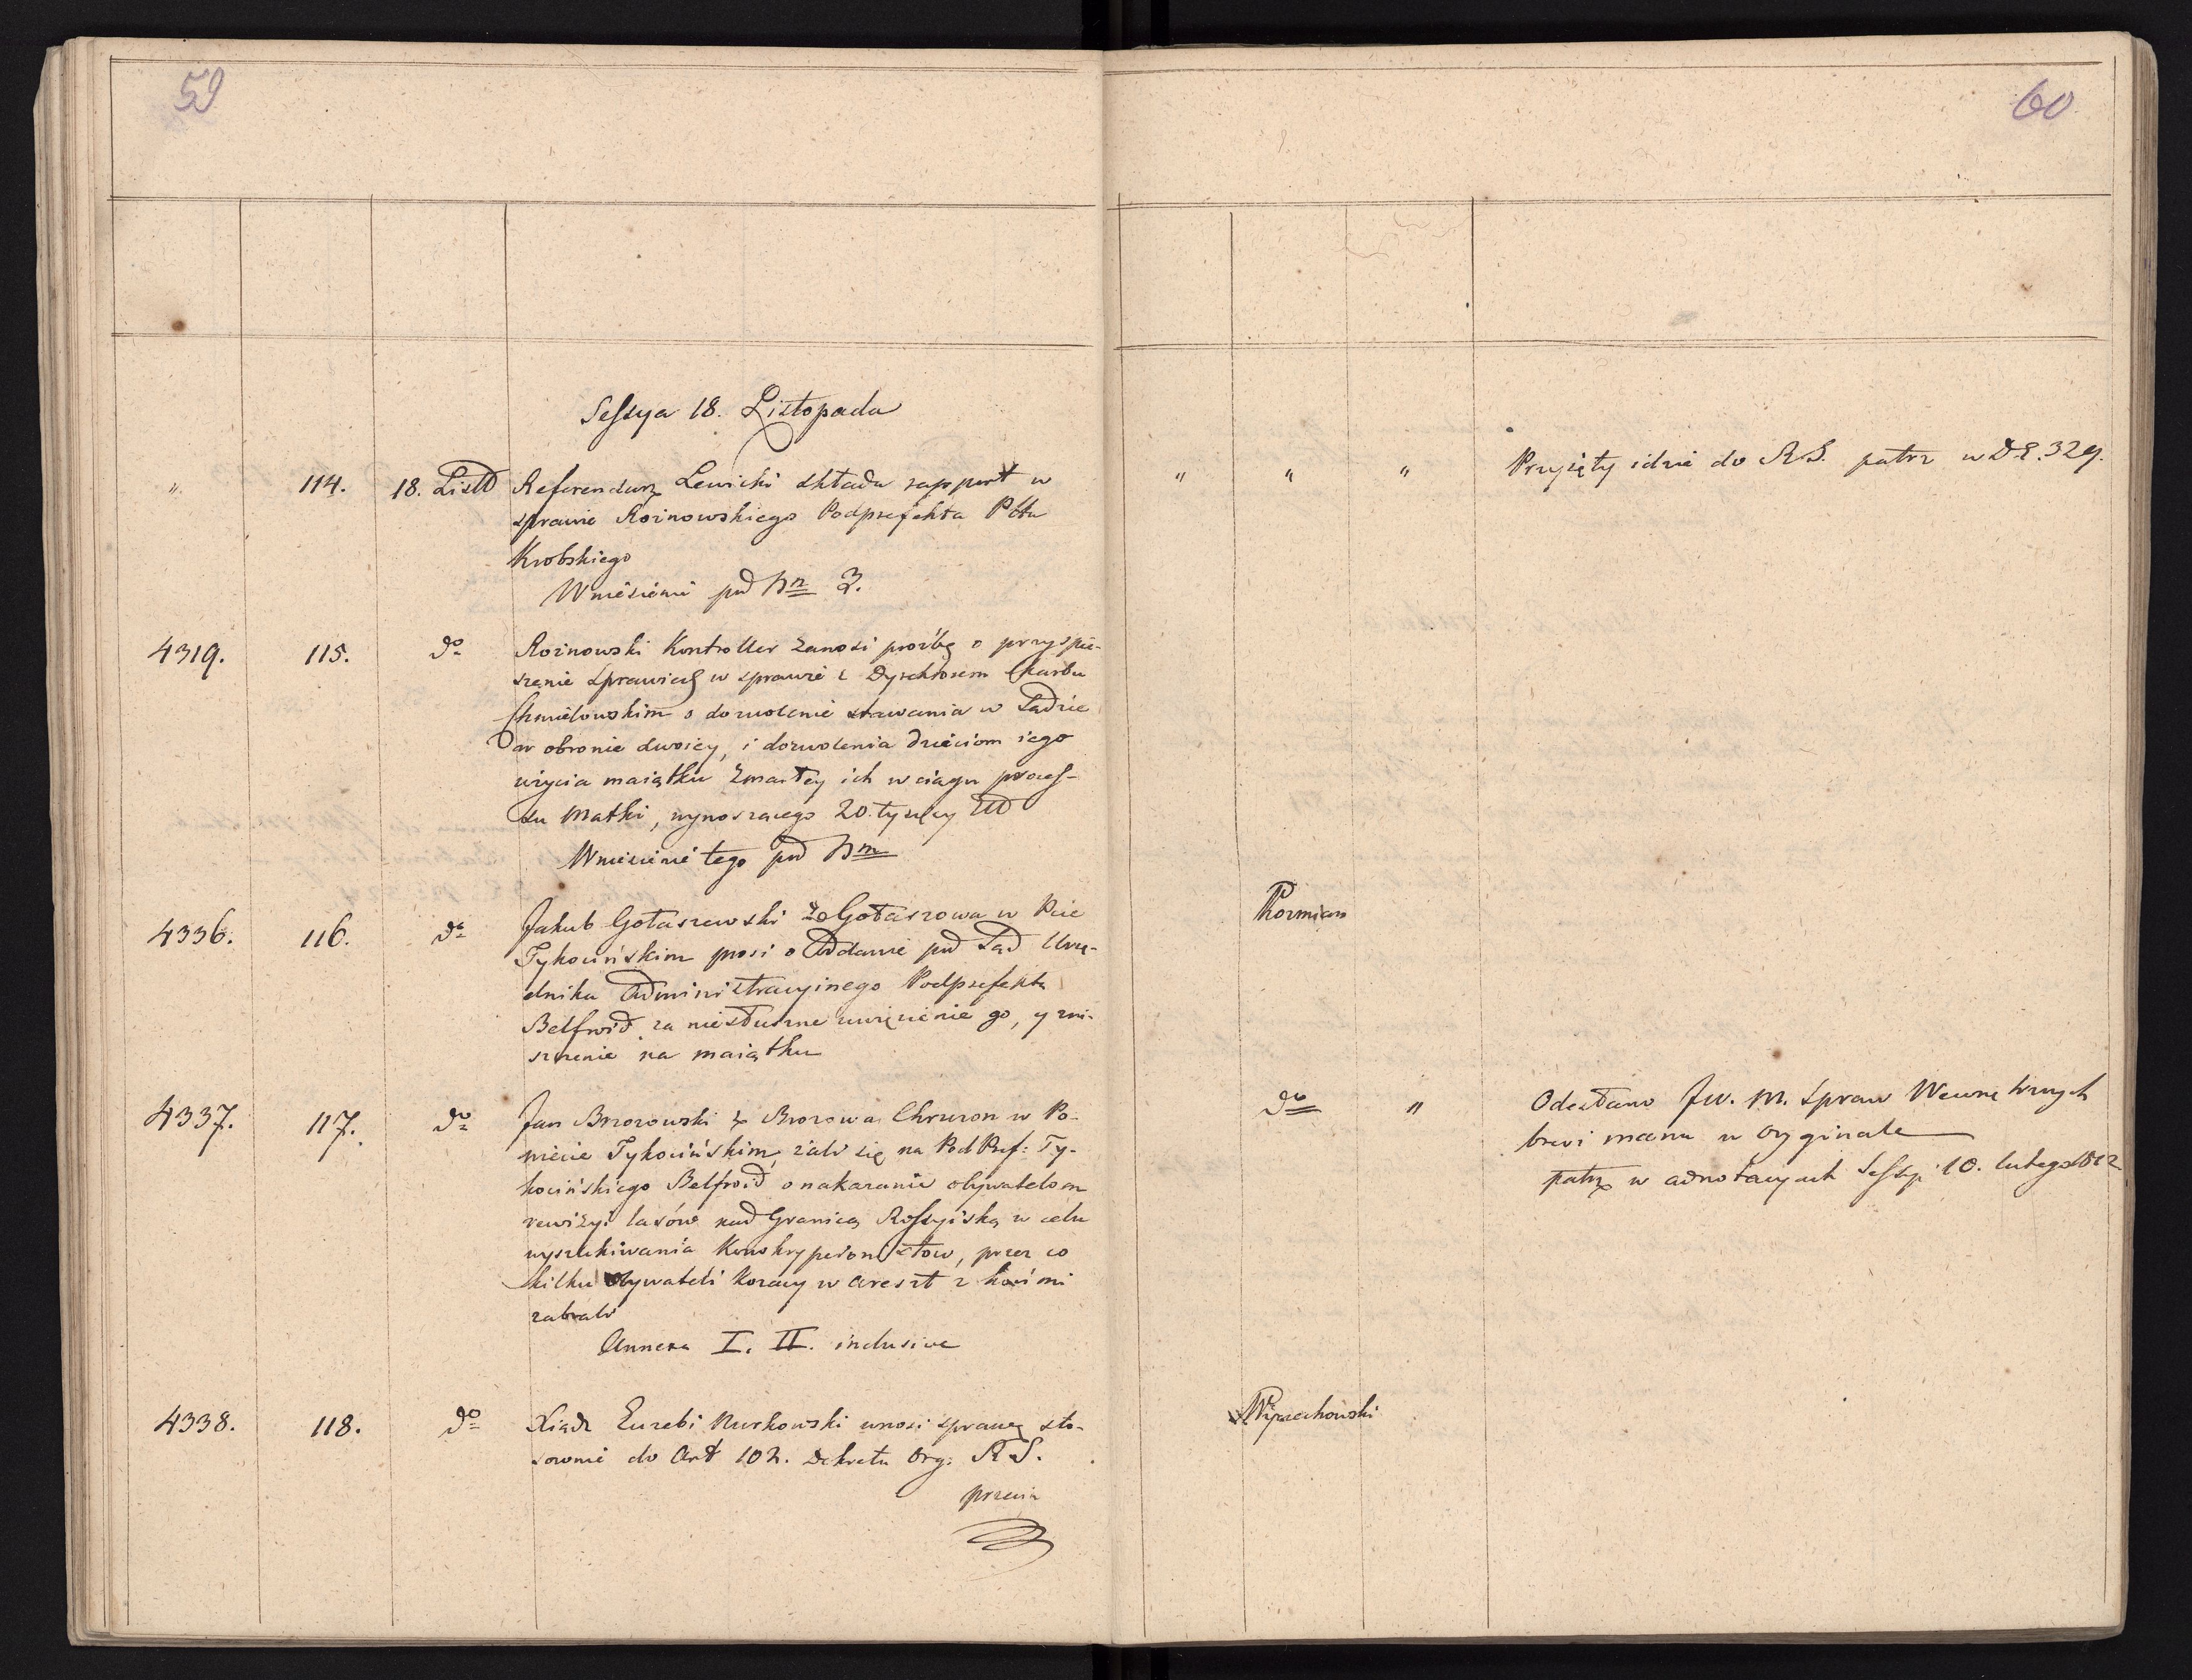 59
60
Sessya 18. Listopada
" 114. 18. Listd Referendarz Lewicki składa rapport w
sprawie Roinowskiego Podprefekta Pttu
Krobskiego
Wniesienie pod
" " " Przyięty idzie do R S. patrz w D.E. 329.
4319. 115. do Roinowski Kontroller zanosi prożbę o przyspie-
szenie sprawied w sprawie z Dyrektorem Skarbu
Chmielowskim o dozwolenie stawania w Sądzie
w obronie swoiey, i dozwolenia dzieciom iego
użycia maiątku zmarłey ich w ciągu proces-
su Matki, wynoszącego 20. tysięcy
Wniesienie tego pod
4336. 116. do Jakub Gołaszewski z Gołaszowa w Pcie
Tykocińskim prosi o oddanie pod Sąd Urzę-
dnika Administracyinego Podprefekta
Belfroid za niesłuszne uwięzienie go, y zni-
szczenie na maiątku
Kozmian
4337. 117. do Jan Brzozowski z Brzozowa Chrzczon w Po-
wiecie Tykocińskim, żali się na PodPref: Ty-
kocińskiego Belfroid o nakazanie obywatelom
rewizyi lasów nad Granicą Rossyiską w celu
wyszukiwania Konskrypcionistow, przez co
kilku obywateli Kozacy w areszt z końmi
zabrali
Annexa I. II. inclusive
do " Odesłano Jw. M. Spraw Wewnętrznych
brevi manu w Oryginale
patrz w adnotacyach Sessyi 10. lutego 1812
4338. 118. do Xiądz Euzebi Kurkowski wnosi sprawę sto-
sownie do Art 102. Dekretu Org: R S.
przeciw
Wyczechowski